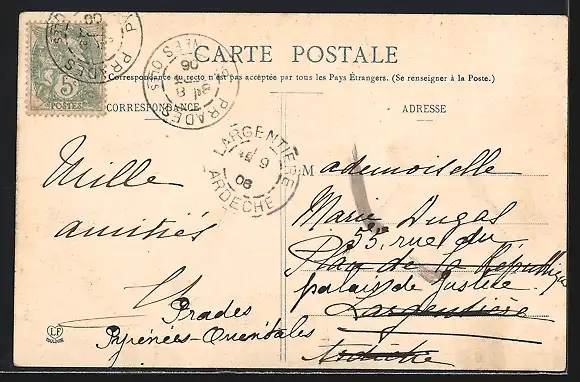 CARTE POSTALE
Correspondance au recto n'est pas acceptée par tous les Pays Étrangers. (Se renseigner à la Poste.)
CORRESPONDANCE
ADRESSE
5c
POSTES
PRADES
PRADES
LARGENTIERE
9
08
ARDECHE
Mille
amitiés
Prades
Pyrénées-Orientales
Mademoiselle
Marie Dugas
55, rue du
Place de la République
palais de justice
Largentière
Ardèche
LF